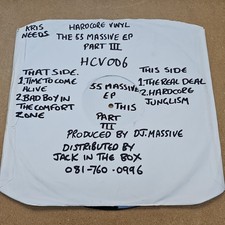 KRIS NEEDS
HARDCORE VINYL
THE 55 MASSIVE EP
PART III
HCV006
THAT SIDE.
1.TIME TO COME
ALIVE
2.BAD BOY IN
THE COMFORT
ZONE
55 MASSIVE
EP
THIS
PART
III
THIS SIDE
1.THE REAL DEAL
2.HARDCORE
JUNGLISM
PRODUCED BY D.J.MASSIVE
DISTRIBUTED BY
JACK IN THE BOX
081-760-0996